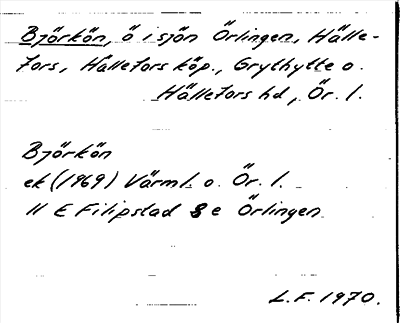 Björkön, ö i sjön Örlingen, Hälle-
fors, Hällefors köp., Grythytte o.
Hällefors hd, Ör. l.
Björkön
ek (1969) Värml. o. Ör. l.
11 E Filipstad 8 e Örlingen
L.F. 1970.